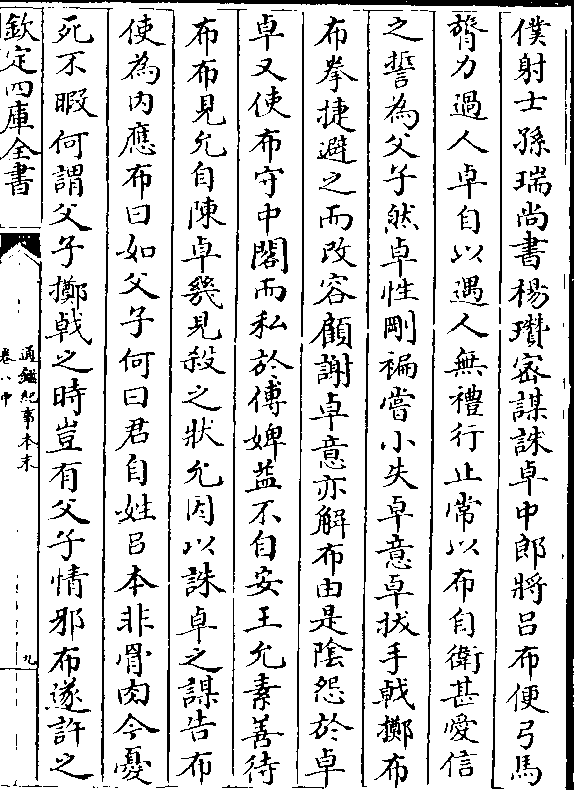 僕射士孫瑞尚書楊瓚密謀誅卓中郎將吕布便弓馬
膂力過人卓自以遇人無禮行止常以布自衛甚愛信
之誓為父子然卓性剛褊嘗小失卓意卓拔手戟擲布
布拳捷避之而改容顧謝卓意亦解布由是陰怨於卓
卓又使布守中閤而私於傅婢益不自安王允素善待
布布見允自陳卓幾見殺之狀允因以誅卓之謀告布
使為内應布曰如父子何曰君自姓吕本非骨肉今憂
死不暇何謂父子擲戟之時豈有父子情邪布遂許之
欽定四庫全書
通鑑紀事本末
卷八中
九